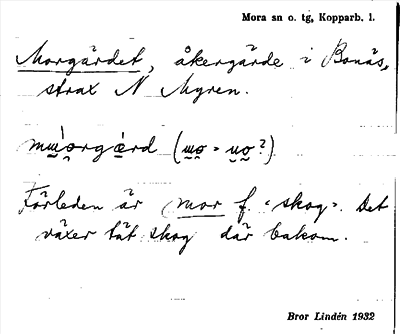 Mora sn o. tg, Kopparb. l.
Morgärdet, åkergärde i Bonäs,
strax N Myren.
mɯ̯̀o̯rgæ̯rd (ɯ̯o̯ = u̯o̯?)
Förleden är mor f. "skog". Det
växer tät skog där bakom.
Bror Lindén 1932